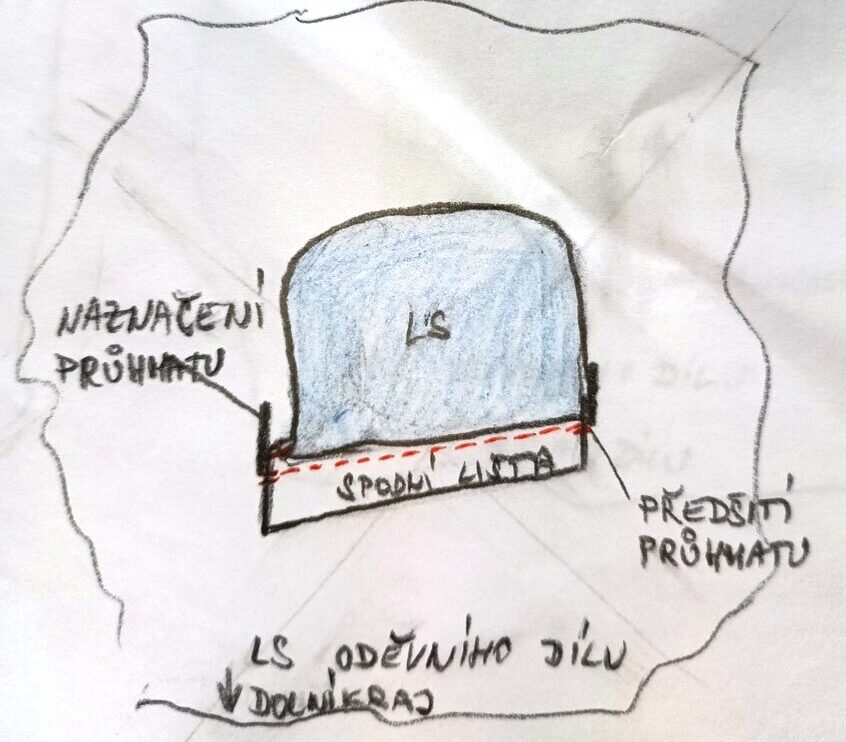 LS
NAZNAČENÍ
PRŮHMATU
SPODNÍ LIŠTA
PŘEDŠITÍ
PRŮHMATU
LS ODĚVNÍHO DÍLU
DOLNÍ KRAJ